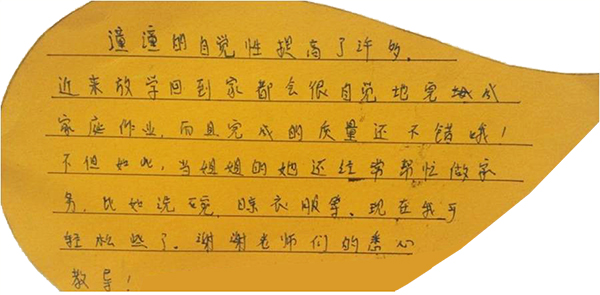 潼潼的自觉性提高了许多。
近来放学回到家都会很自觉地完成
家庭作业，而且完成的质量还不错哦！
不但如此，当姐姐的她还经常帮忙做家
务，比如洗碗，晾衣服等。现在我可
轻松些了。谢谢老师们的悉心
教导！